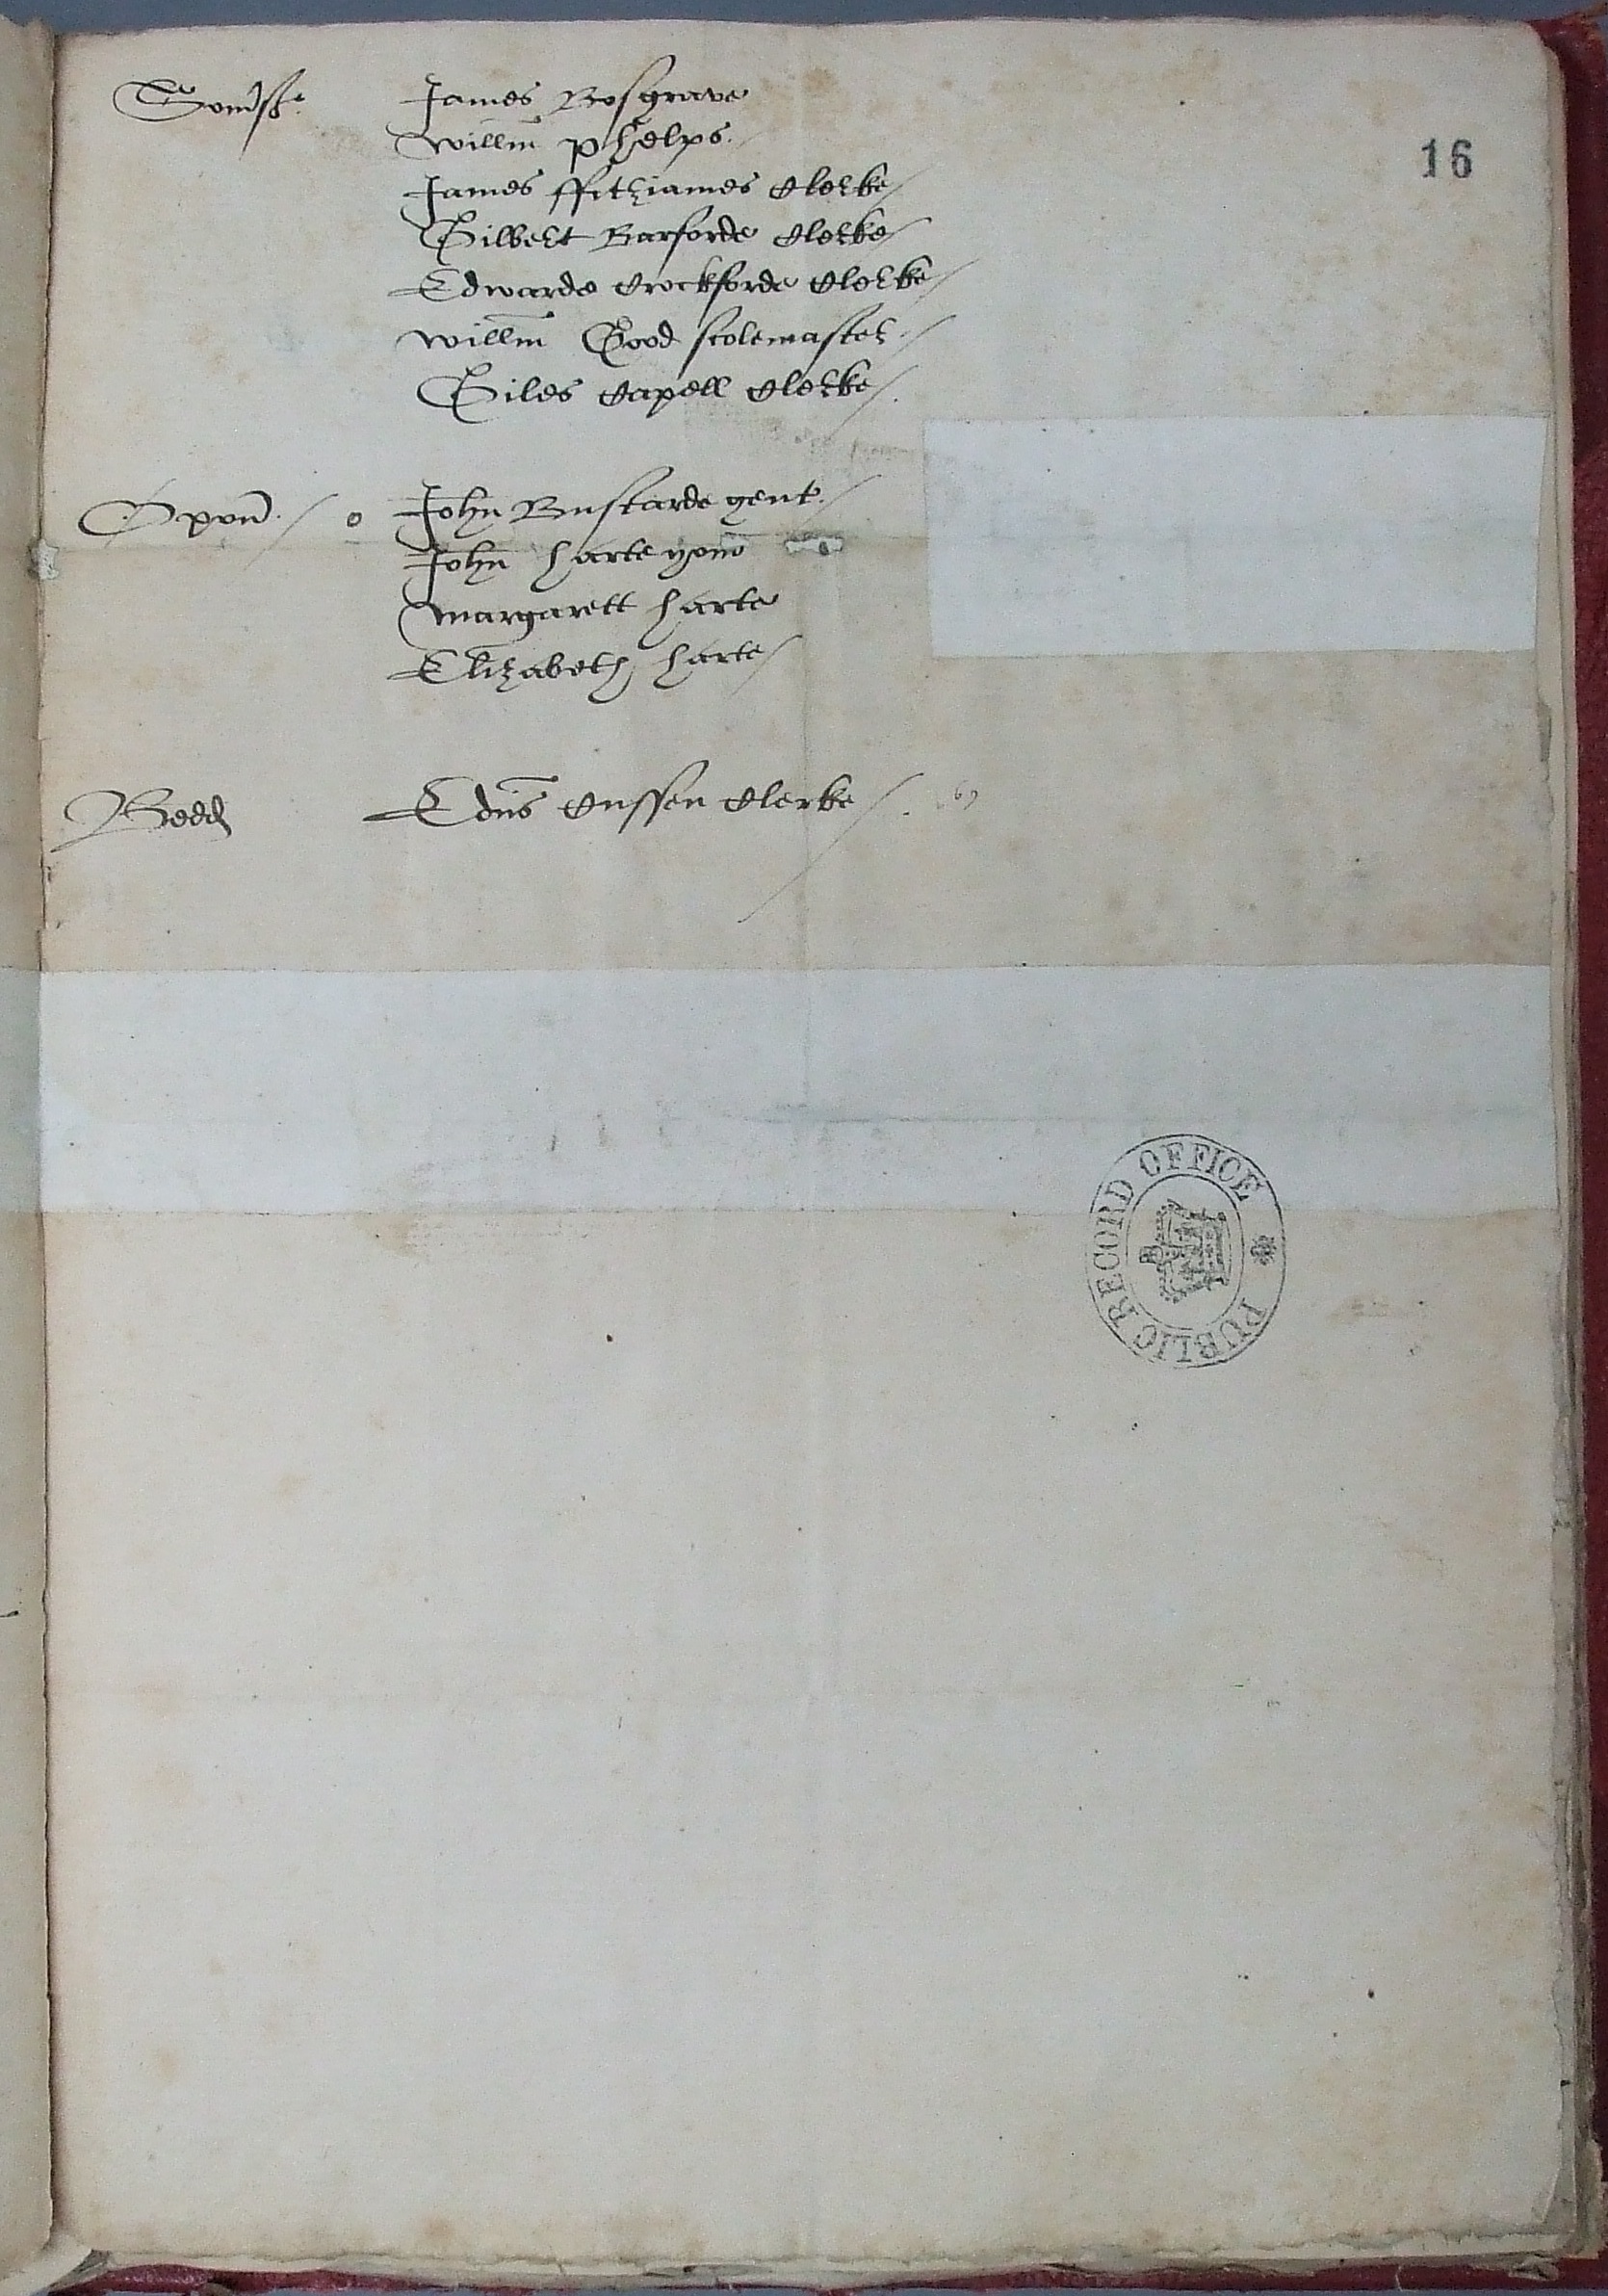 16
Somſſ James Bosgrave
Willm̄ Phelps
James ffitziames Clerke /
Gilbert Barforde Clerke /
Edwarde Crockforde Clerke /
Willm̄ Good scolemaster /
Giles Capell Clerke /
Oxon̄ / o John Bustarde gent /
John harte yom̄
Margarett harte
Elizabeth harte /
Bedd Edm̄s Cussen Clerke /
PUBLIC RECORD OFFICE